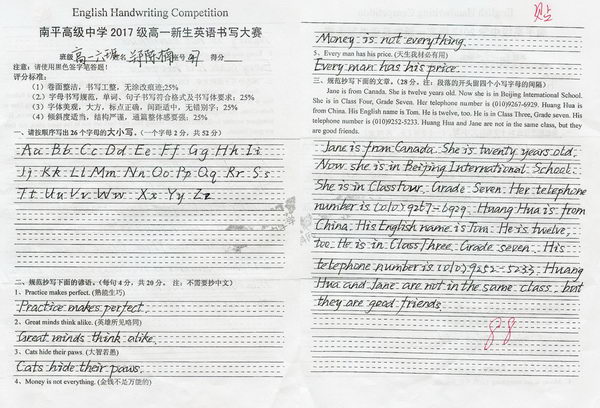 English Handwriting Competition
南平高级中学 2017 级高一新生英语书写大赛
班级 高一六班 姓名 郑陈楠 座号 47 得分
注意:请使用黑色签字笔答题!
评分标准:
(1)卷面整洁,书写工整,无涂改痕迹;25%
(2)字母书写规范,单词、句子书写符合格式及书写体要求;25%
(3)字体美观,大方,标点正确,间距适中,无错别字;25%
(4)倾斜度适当,结构严谨,通篇整体感要强;25%
一、请按顺序写出 26 个字母的大小写.(一个字母 2 分,共 52 分)
Aa Bb Cc Dd Ee Ff Gg Hh Ii
Jj Kk Ll Mm Nn Oo Pp Qq Rr Ss
Tt Uu Vv Ww Xx Yy Zz
二、规范抄写下面的谚语。(每句 4 分,共 20 分。 注:不需要抄中文)
1、Practice makes perfect. (熟能生巧)
Practice makes perfect.
2、Great minds think alike. (英雄所见略同)
Great minds think alike.
3、Cats hide their paws. (大智若愚)
Cats hide their paws.
4、Money is not everything. (金钱不是万能的)
Money is not everything.
5、Every man has his price. (天生我材必有用)
Every man has his price.
三、规范抄写下面的文章。(28 分。注:段落的开头留四个小写字母的间隔)
Jane is from Canada. She is twelve years old. Now she is in Beijing International School.
She is in Class Four, Grade Seven. Her telephone number is (010)9267-6929. Huang Hua is
from China. His English name is Tom. He is twelve, too. He is in Class Three, Grade Seven. His
telephone number is (010)9252-5233. Huang Hua and Jane are not in the same class, but they
are good friends.
Jane is from Canada. She is twenty years old.
Now she is in Beijing International School.
She is in Class Four, Grade Seven. Her telephone
number is (010)9267-6929. Huang Hua is from
China. His English name is Tom. He is twelve,
too. He is in Class Three, Grade seven. His
telephone number is (010)9252-5233. Huang
Hua and Jane are not in the same class, but
they are good friends.
88